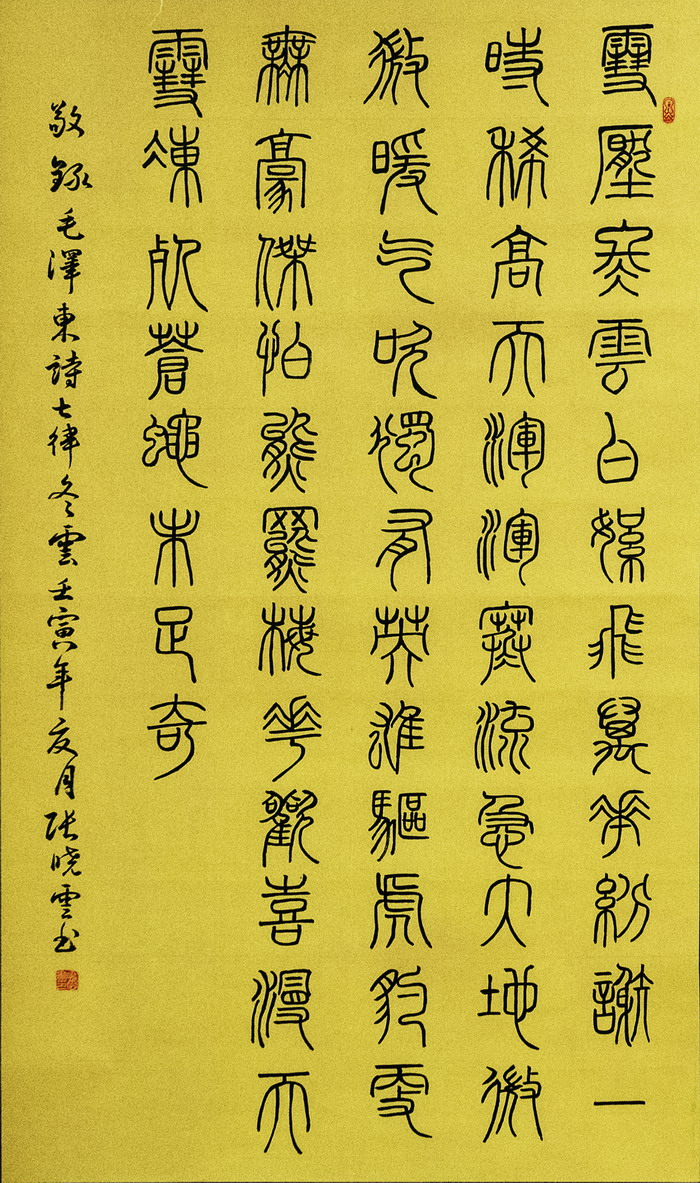 雪壓冬雲白絮飛萬花紛謝一
時稀高天渾渾寒流急大地微
微暖气吹獨有英雄驅虎豹更
無豪傑怕熊羆梅花歡喜漫天
雪凍死蒼蠅未足奇
敬錄毛澤東詩七律冬雲壬寅年夏月张晓雲书